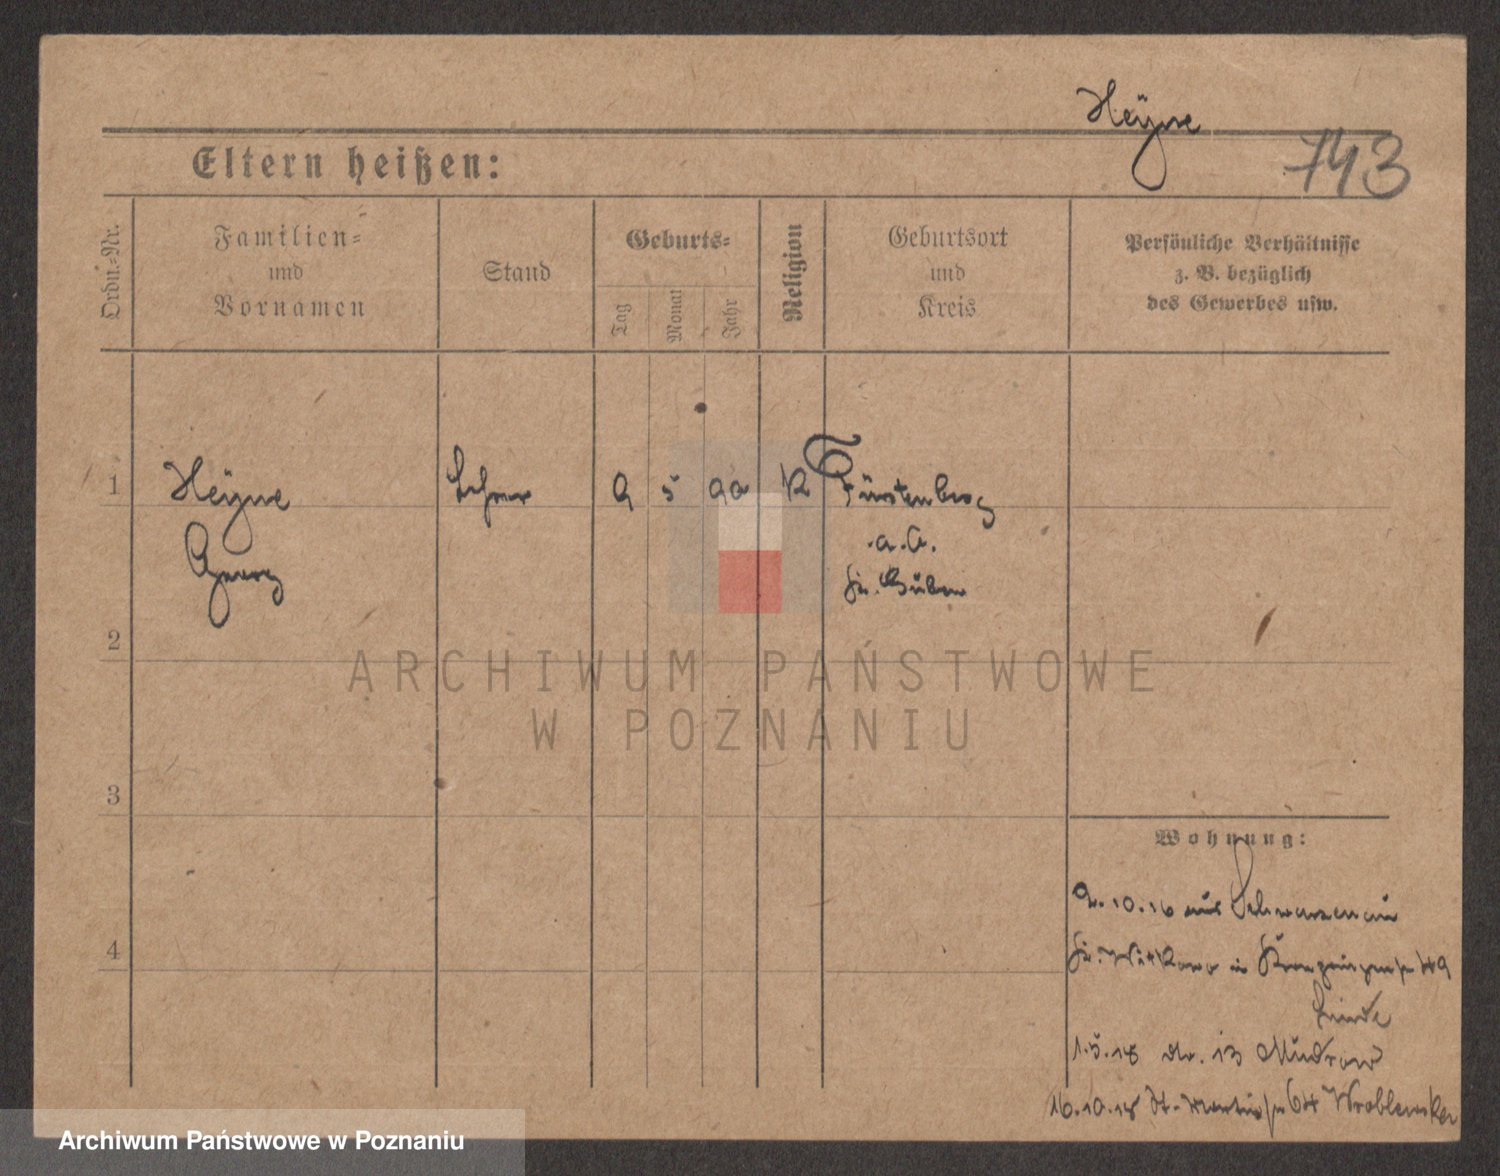 Heyne
743
Eltern heißen:
Ordn.-Nr.
Familien-
und
Vornamen
Stand
Geburts-
Tag
Monat
Jahr
Religion
Geburtsort
und
Kreis
Persönliche Verhältnisse
z. B. bezüglich
des Gewerbes usw.
1
Heyne
Lehrer
9
5
90
K
Fürstenberg
Georg
a. O.
Kr. Guben
2
ARCHIWUM PAŃSTWOWE
W POZNANIU
3
Wohnung:
2.10.16 aus Schwarzenau
4
Kr. Witkowo in Kronprinzenstr 49
Linde
1.5.18 do. 13
16.10.18 St. Martinstr 64 Wroblewska
Archiwum Państwowe w Poznaniu